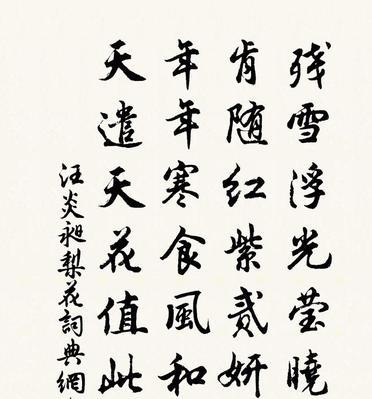 残雪浮光莹晓
肯随红紫贰妍
年年寒食风和
天遣天花值此
汪炎昶梨花詞典網